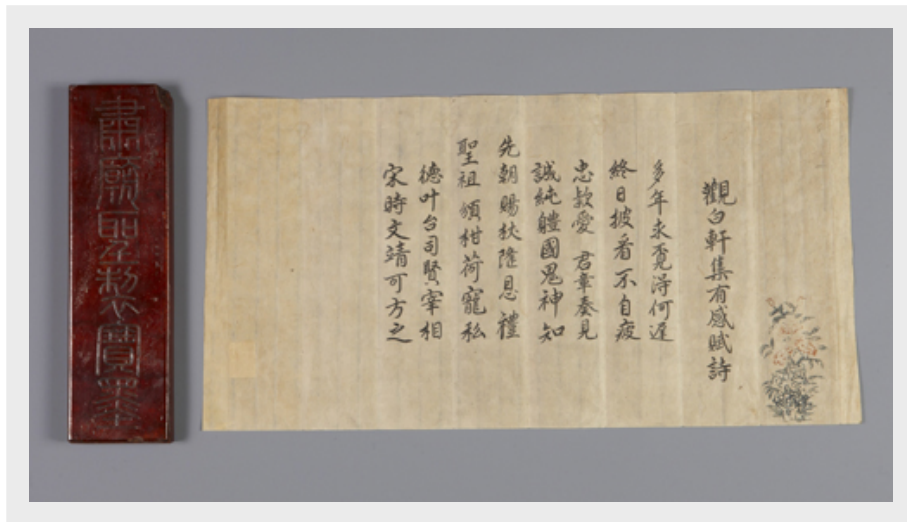 觀白軒集有感賦詩
多年求覓淂何遲
終日披看不自疲
忠欵愛 君章奏見
誠純體國鬼神知
先朝賜杖隆恩禮
聖祖頒柑荷寵私
德叶台司賢宰相
宋時文靖可方之
肅廟聖製寶墨